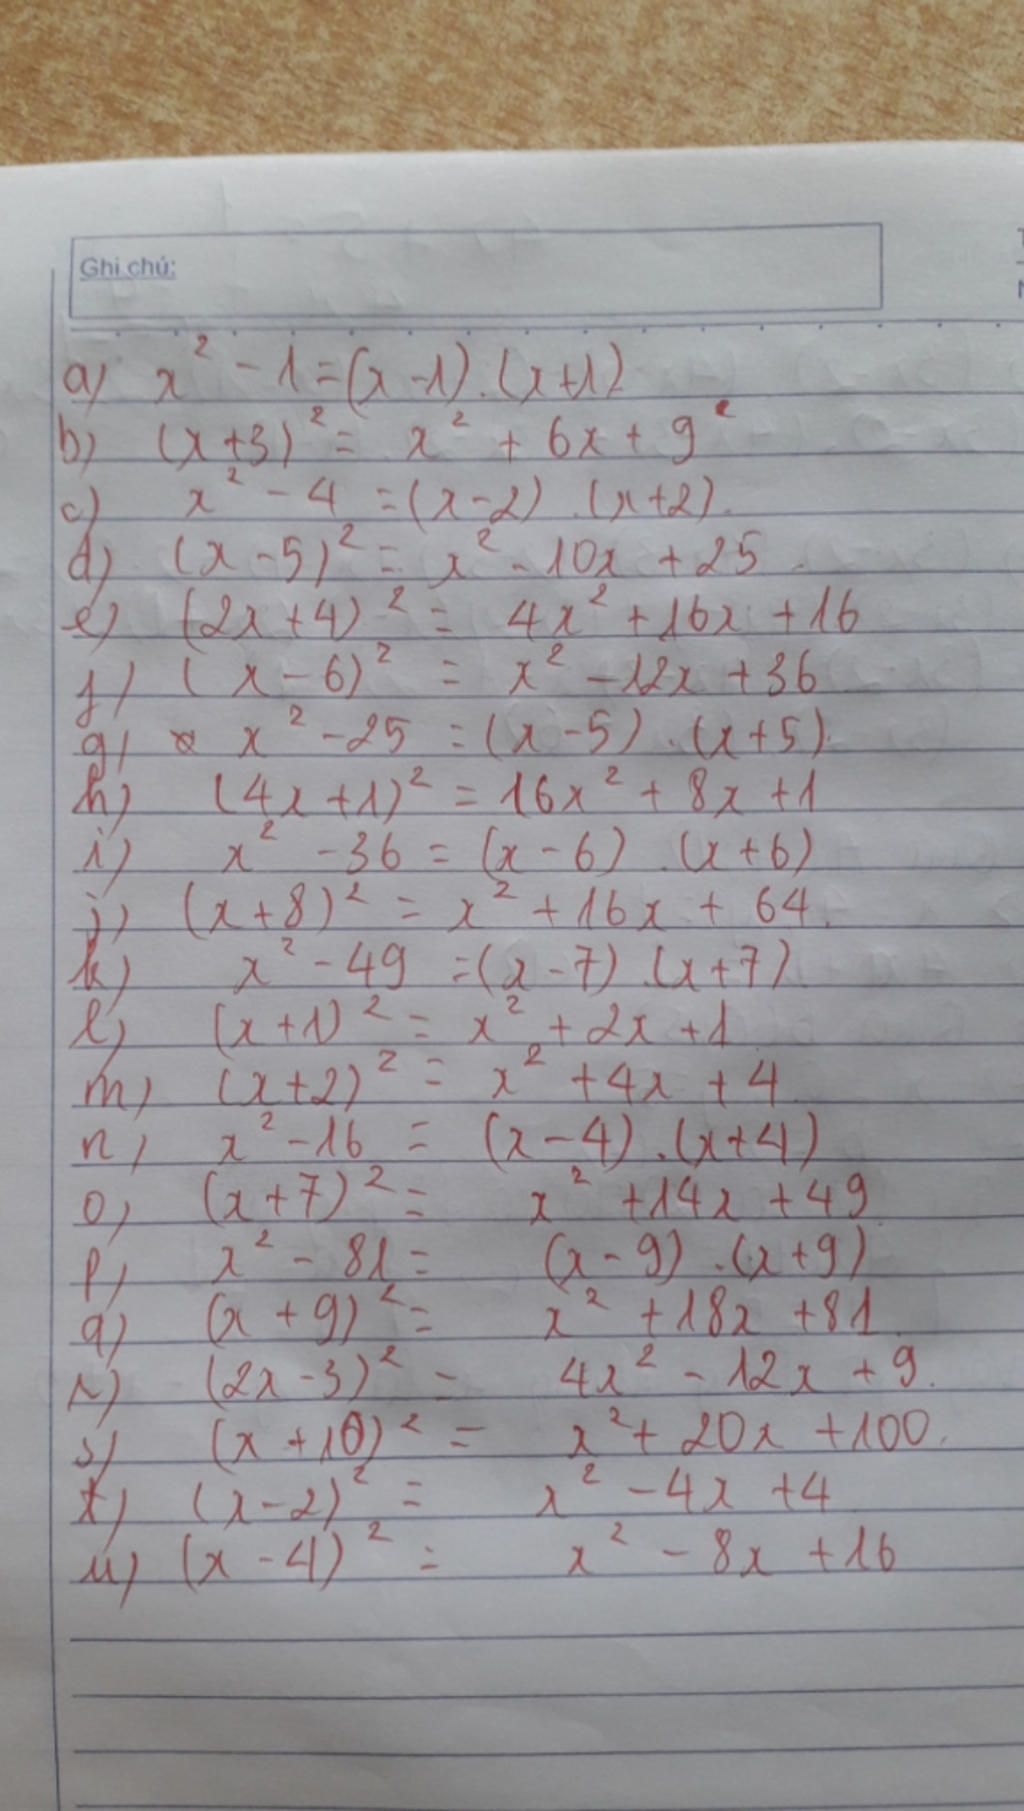 Ghi chú:
a) x² - 1 = (x - 1) . (x + 1)
b) (x + 3)² = x² + 6x + 9
c) x² - 4 = (x - 2) . (x + 2).
d) (x - 5)² = x² - 10x + 25
e) (2x + 4)² = 4x² + 16x + 16
f) (x - 6)² = x² - 12x + 36
g) x² - 25 = (x - 5) . (x + 5).
h) (4x + 1)² = 16x² + 8x + 1
i) x² - 36 = (x - 6) . (x + 6)
j) (x + 8)² = x² + 16x + 64.
k) x² - 49 = (x - 7) . (x + 7)
l) (x + 1)² = x² + 2x + 1
m) (x + 2)² = x² + 4x + 4
n) x² - 16 = (x - 4) . (x + 4)
o) (x + 7)² = x² + 14x + 49
p) x² - 81 = (x - 9) . (x + 9)
q) (x + 9)² = x² + 18x + 81
r) (2x - 3)² = 4x² - 12x + 9.
s) (x + 10)² = x² + 20x + 100.
t) (x - 2)² = x² - 4x + 4
u) (x - 4)² = x² - 8x + 16